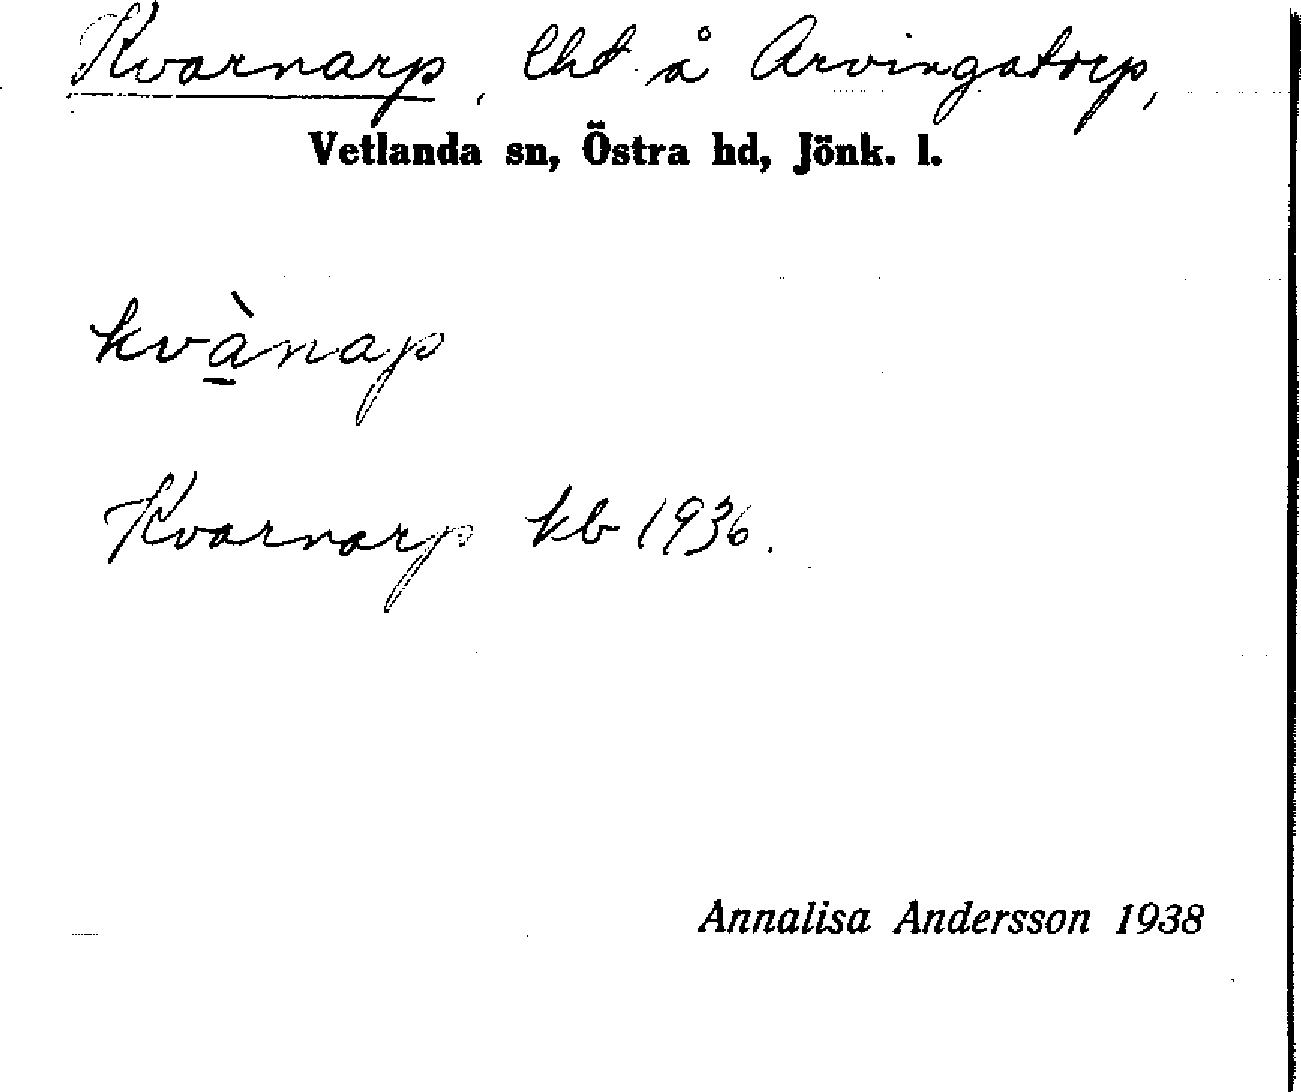 Kvarnarp, lht å Arvingatorp,
Vetlanda sn, Östra hd, Jönk. l.
kvànap
Kvarnarp kb 1936.
Annalisa Andersson 1938